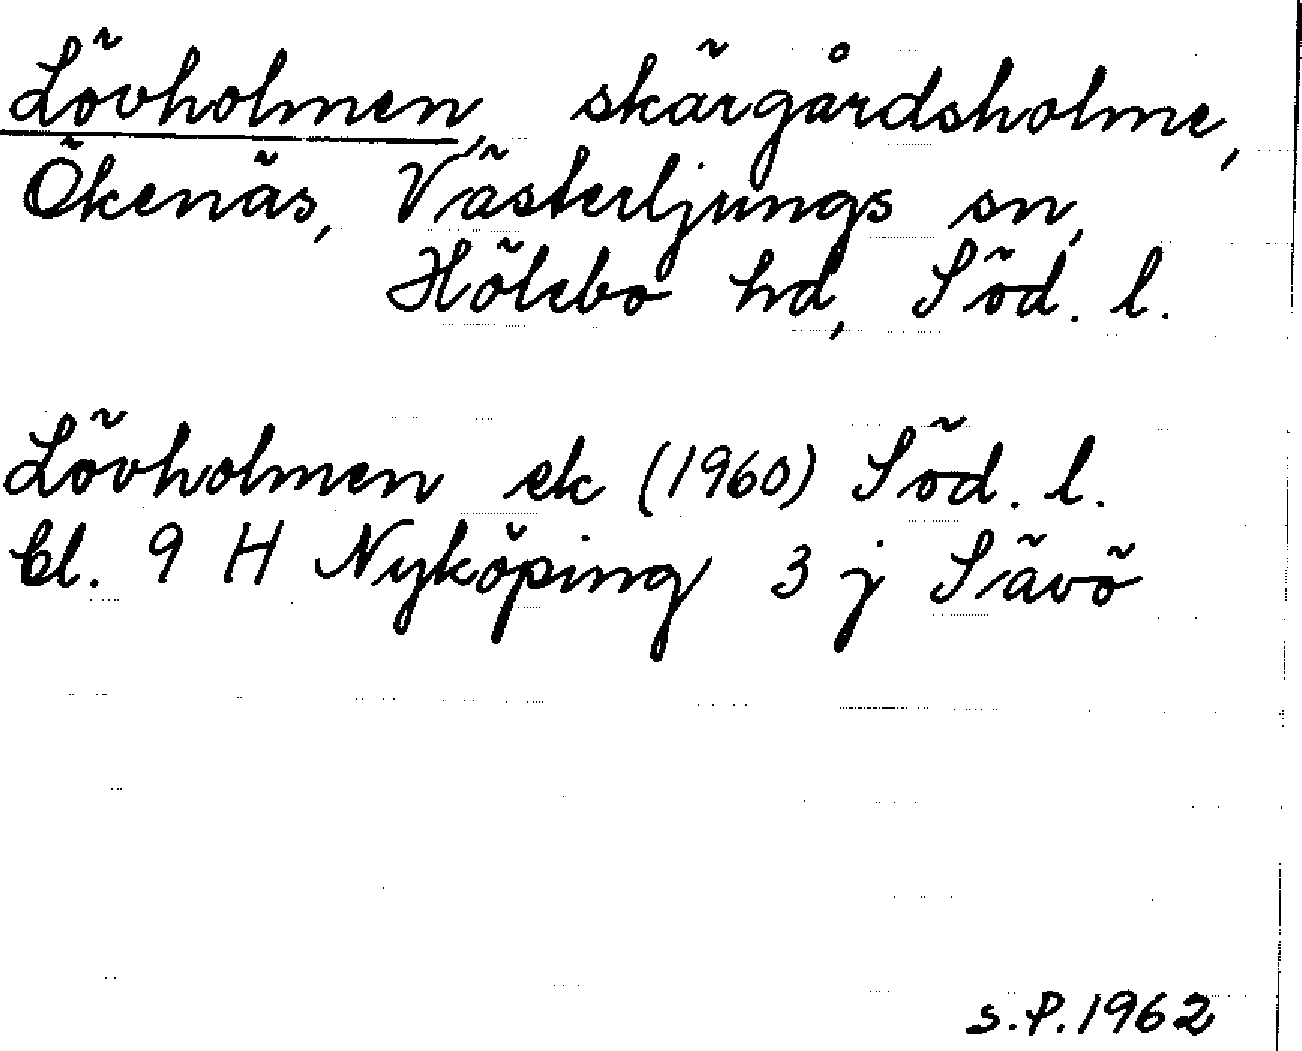 Lövholmen, skärgårdsholme,
Ökenäs, Västerljungs sn,
Hölebo hd, Söd. l.
Lövholmen ek (1960) Söd. l.
bl. 9 H Nyköping 3 j Sävö
s.P. 1962